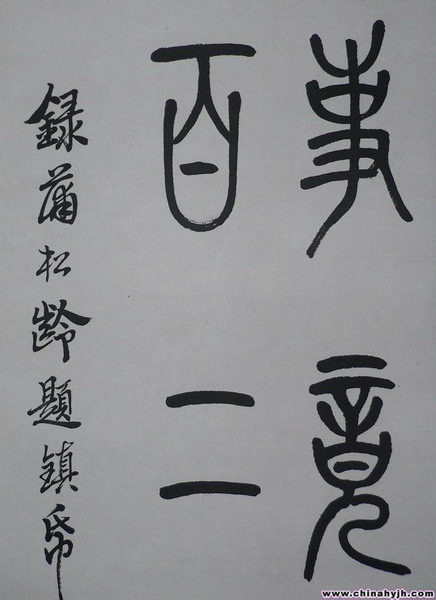 事竟
百二
録蒲松齡題鎮帋
www.chinahyjh.com